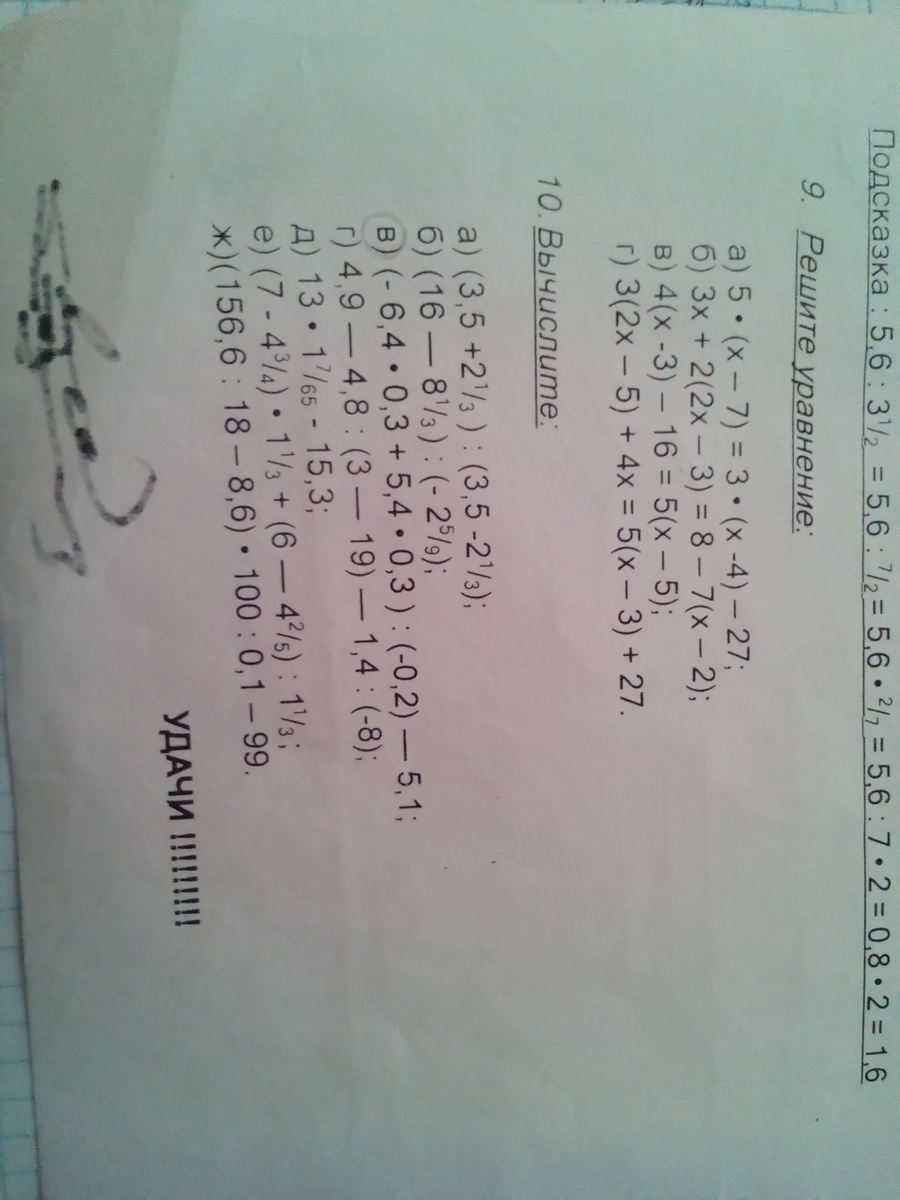 Подсказка : 5,6 : 3¹/₂ = 5,6 : ⁷/₂ = 5,6 • ²/₇ = 5,6 : 7 • 2 = 0,8 • 2 = 1,6
9. Решите уравнение:
а) 5 • (х – 7) = 3 • (х -4) – 27;
б) 3х + 2(2х – 3) = 8 – 7(х – 2);
в) 4(х -3) – 16 = 5(х – 5);
г) 3(2х – 5) + 4х = 5(х – 3) + 27.
10. Вычислите:
а) (3,5 +2¹/₃ ) : (3,5 -2¹/₃);
б) (16 — 8¹/₃ ) : (- 2⁵/₉);
в) (- 6,4 • 0,3 + 5,4 • 0,3 ) : (-0,2) — 5,1;
г) 4,9 — 4,8 : (3 — 19) — 1,4 : (-8);
д) 13 • 1⁷/₆₅ - 15,3;
е) (7 - 4³/₄) • 1¹/₃ + (6 — 4²/₅) : 1¹/₃;
ж)(156,6 : 18 – 8,6) • 100 : 0,1 – 99.
УДАЧИ !!!!!!!!!!